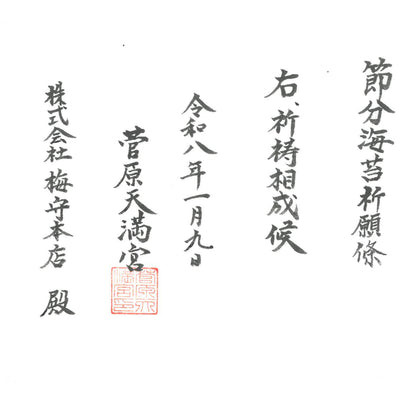 節分海苔祈願條
右、祈祷相成候
令和八年一月九日
菅原天満宮
株式会社 梅守本店 殿